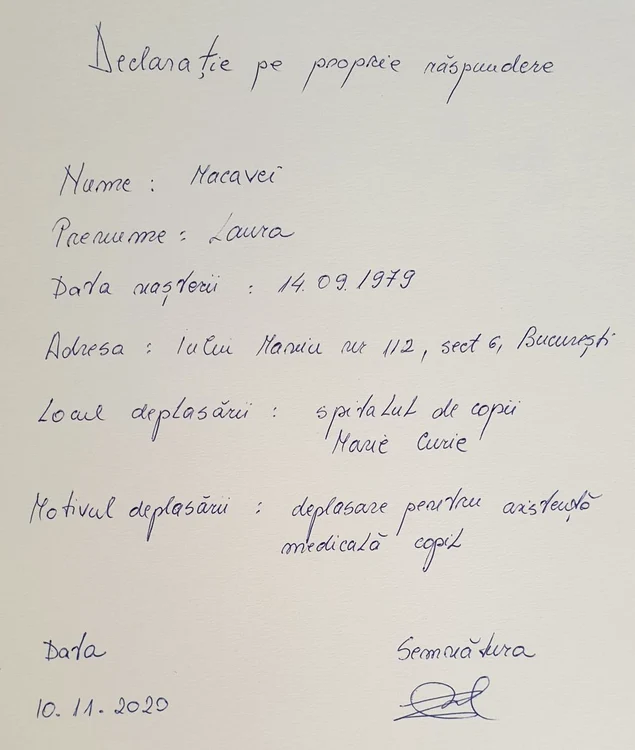 Declarație pe proprie răspundere
Nume : Macavei
Prenume : Laura
Data nașterii : 14.09.1979
Adresa : Iuliu Maniu nr 112, sect 6, București
Locul deplasării : spitalul de copii
Marie Curie
Motivul deplasării : deplasare pentru asistență
medicală copil
Data Semnătura
10.11.2020